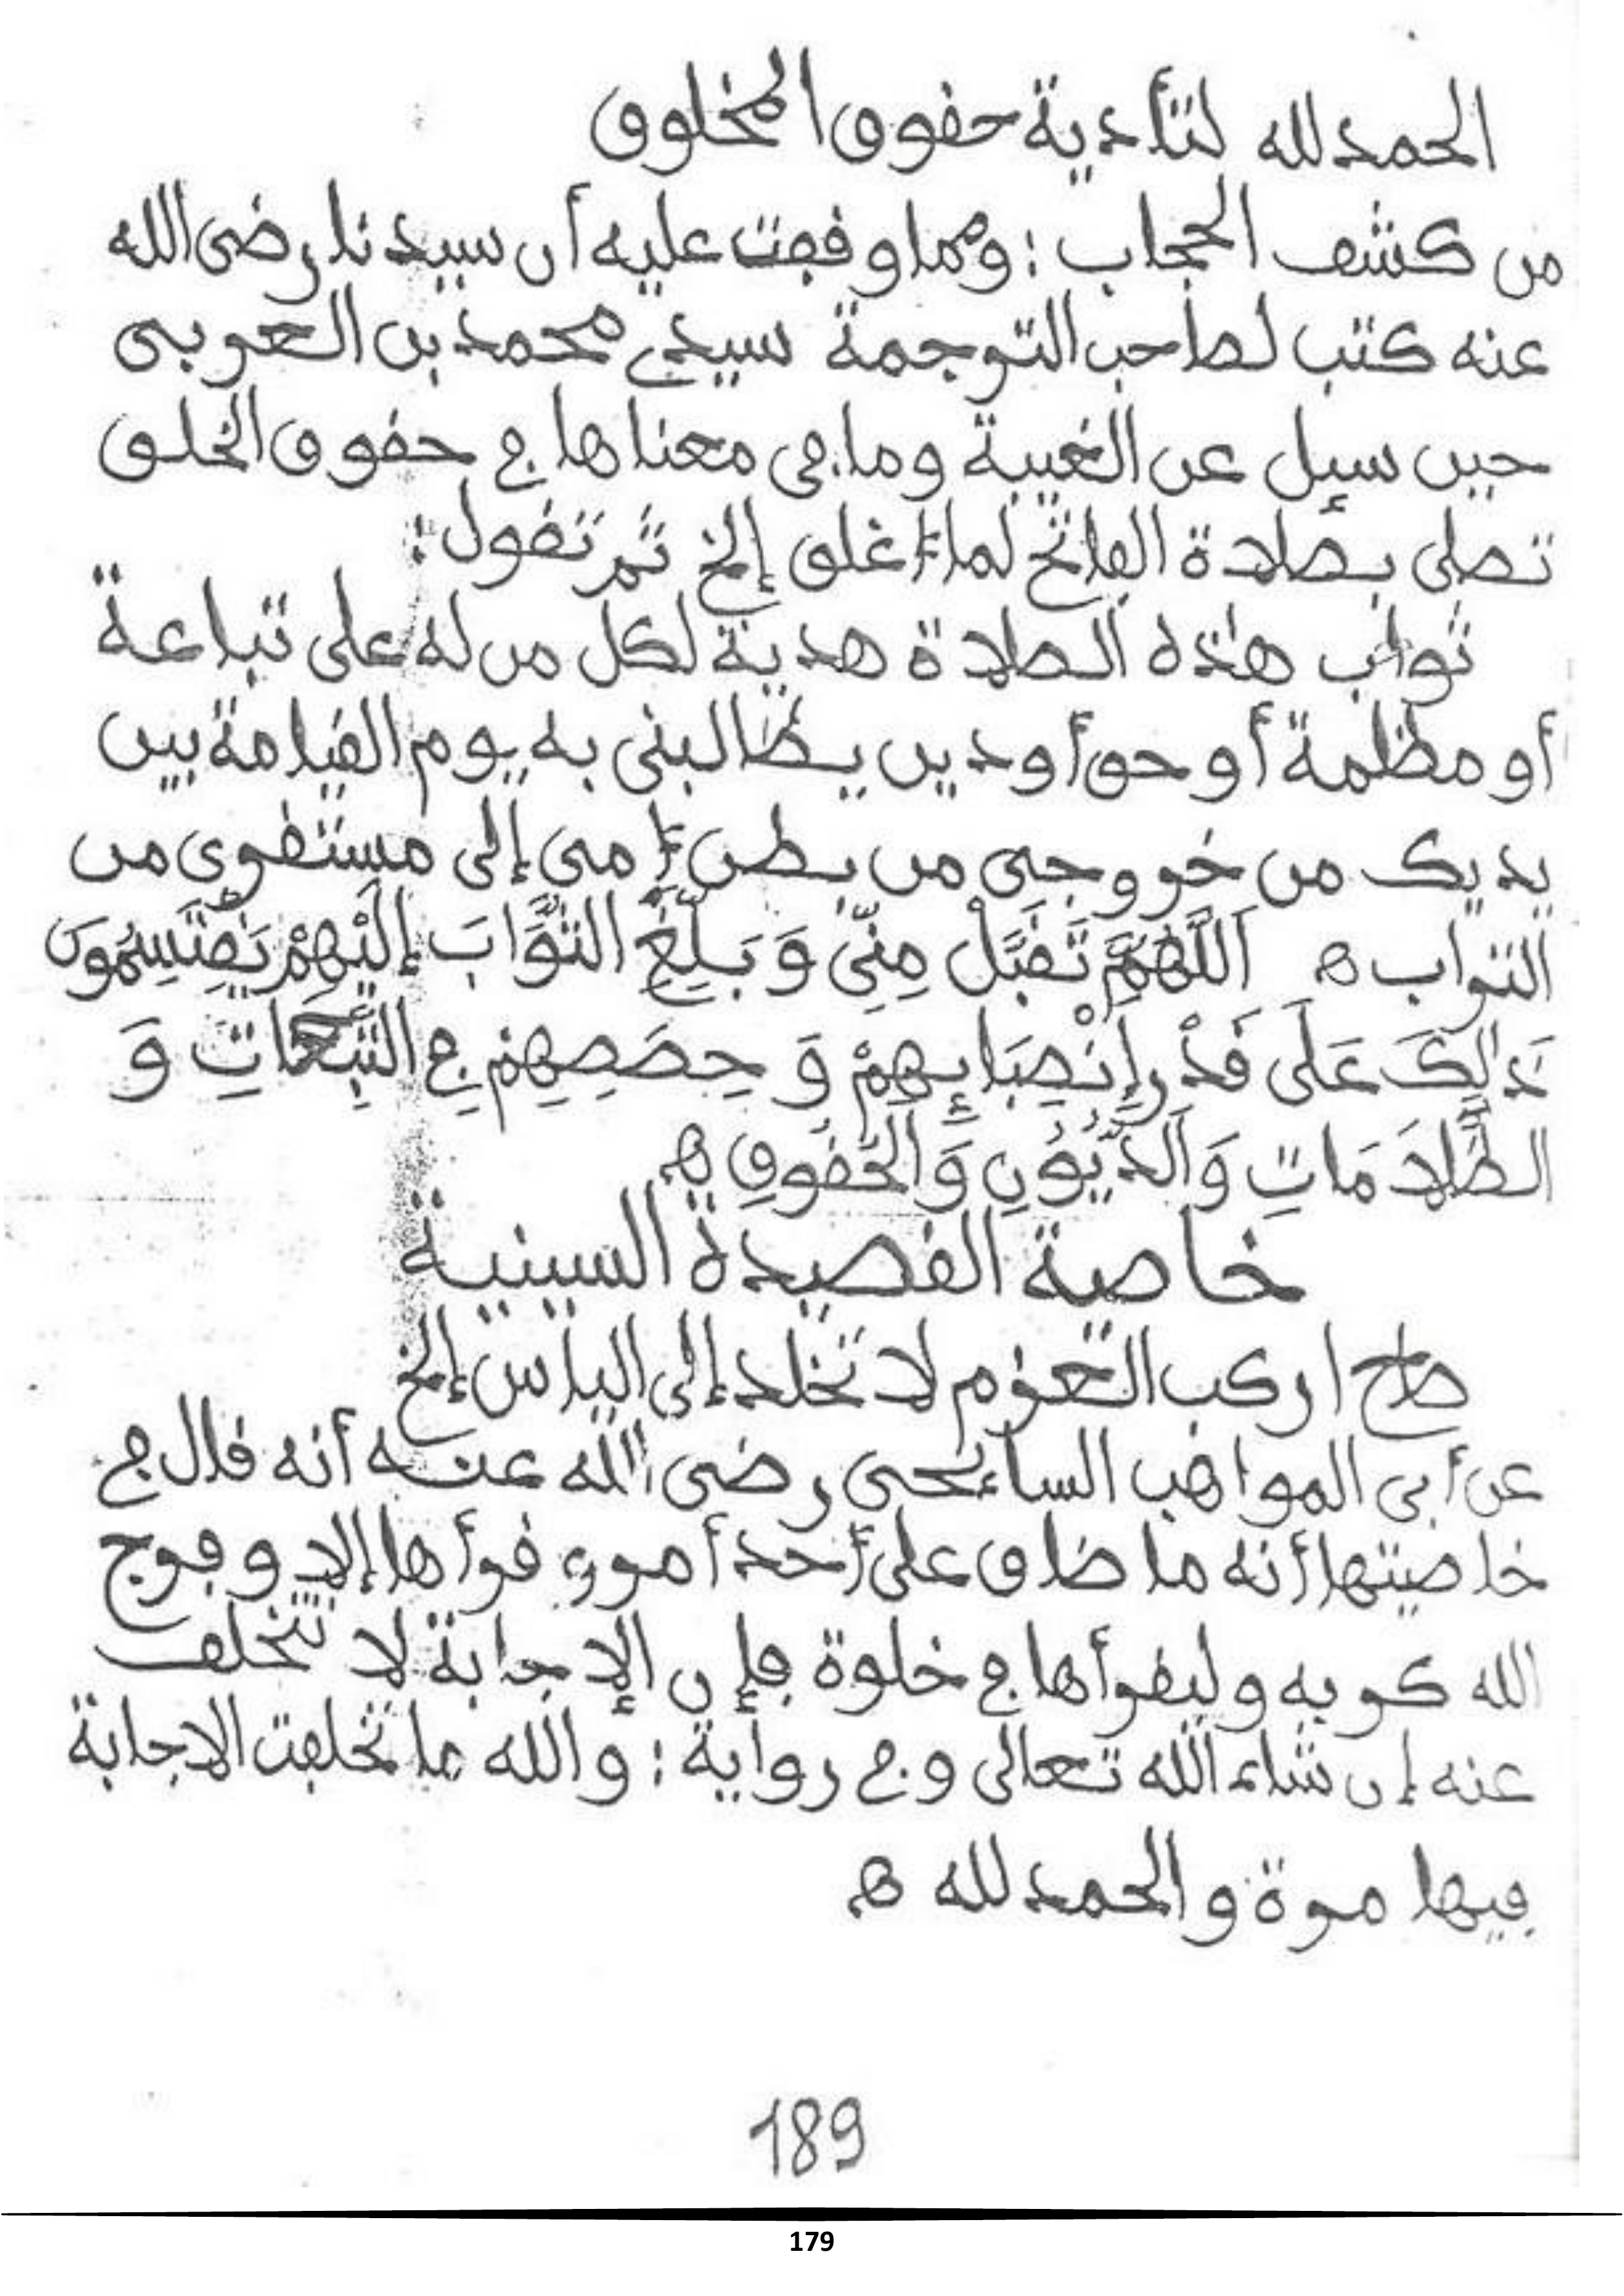 الحمد لله لتأدية حقوق المخلوق
من كشف الحجاب : ومما وقفت عليه أن سيدنا رضى الله
عنه كتب لصاحب الترجمة سيدي محمد بن العربى
حين سيل عن الغيبة وما هى معناها في حقوق الخلق
تصلى بصلاة الفاتح لما أغلق إلخ ثم تقول :
ثواب هذه الصلاة هدية لكل من له على تباعة
أو مظلمة أو حق أو دين يطالبنى به يوم القيامة بين
يديك من خروجى من بطن أمى إلى مستقرى من
التراب ه اَللَّهُمَّ تَقَبَّلْ مِنِّى وَبَلِّغِ الثَّوَابَ إِلَيْهِمْ يَقْتَسِمُونَ
ذَالِكَ عَلَى قَدْرِ إِنْصِبَايِهِمْ وَحِصَصِهِمْ فِي التَّبِعَاتِ وَ
الظُّلاَمَاتِ وَالدُّيُونِ وَالْحُقُوقِ ه
خاصة القصيدة السينية
صاح اركب العزم لا تخلد إلى الياس إلخ
عن أبى المواهب السائحى رضى الله عنه أنه قال في
خاصيتها أنه ما ضاق على أحد أمر و قرأها إلا وفرج
الله كربه وليقرأها في خلوة فإن الإجابة لا تتخلف
عنه إن شاء الله تعالى وفي رواية : والله ما تخلفت الاجابة
فيها مرة والحمد لله ه
189
179